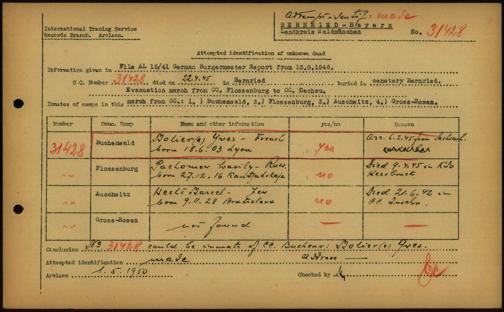 Attempt iden 5/2 made
International Tracing Service
Records Branch. Arolsen.
BERNRIED-Bayern
Landkreis Waldmünchen
No. 31428
Attempted identification of unknown dead
Information given in File AL 13/41 German Burgermaster Report from 15.8.1946.
C.C. Number 31428 died on 22.4.45 in Bernried buried in cemetery Bernried.
Evacuation march from CC. Flossenburg to CC. Dachau.
Inmates of camps in this march from CC.: 1.) Buchenwald, 2.) Flossenburg, 3.) Auschwitz, 4.) Gross-Rosen.
Number Conc. Camp Name and other information yes/no Reason
31428 Buchenwald Bolier(e) Yves - French born 18.6.03 Lyon yes
Flossenburg born 27.12.16 no Died 9.4.45 in Kdo Hersbruck
Auschwitz Hecht Marcel - Jew born 9.11.28 Bratislava no Died 21.6.42 in CC.
Gross-Rosen not found
Conclusion No 31428 could be inmate of CC. Buchenw: Bolier(e) Yves.
Attempted identification made
Arolsen 1.5.1950 Checked by